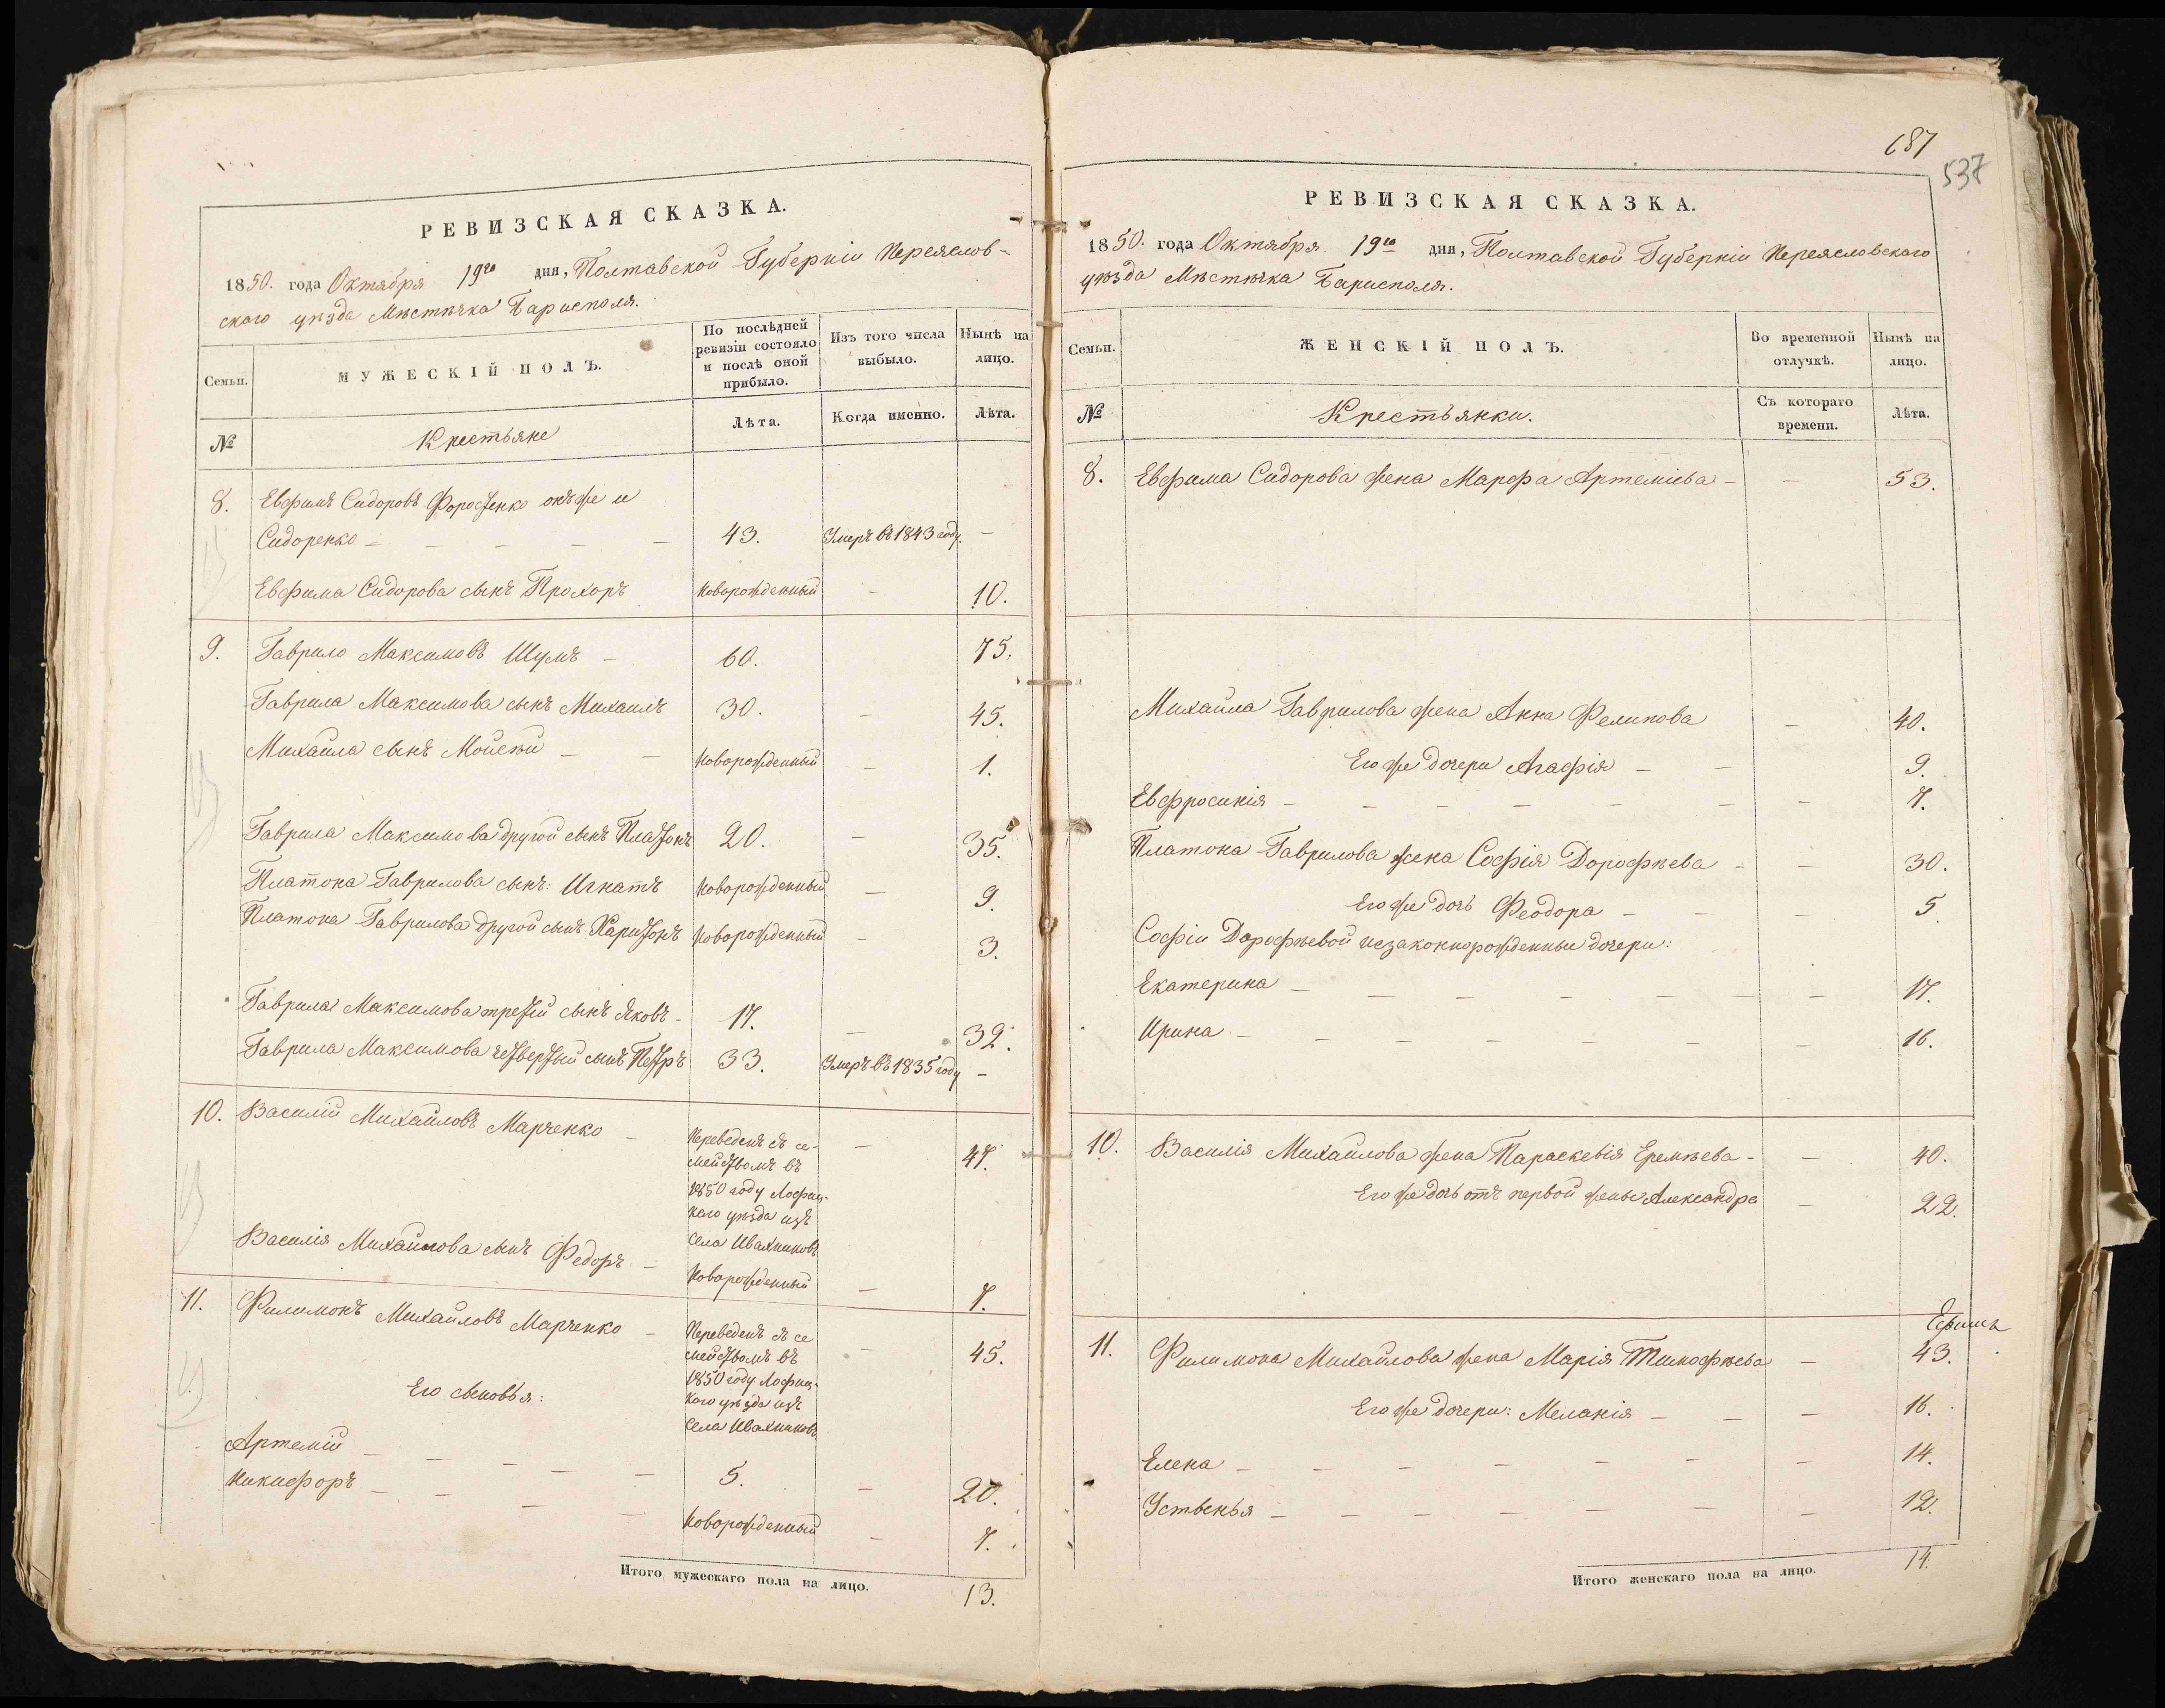 РЕВИЗСКАЯ СКАЗКА.
1850. года Октября 19го дня, Полтавской Губерніи Переяслов-
скаго уѣзда Мѣстѣчка Барисполя.
Семьи.
МУЖЕСКІЙ ПОЛЪ.
По послѣдней ревизіи состояло и послѣ оной прибыло.
Изъ того числа выбыло.
Нынѣ на лицо.
№
Крестьяне
Лѣта.
Когда именно.
Лѣта.
8. Евфимъ Сидоровъ Фороженко онъ же и
Сидоренко — — — — — 43. Умеръ въ 1843 году. —
Евфима Сидорова сынъ Прохоръ Новорожденный — 10.
9. Гаврило Максимовъ Шумъ — 60. 75.
Гаврила Максимова сынъ Михаилъ 30. — 45.
Михайла сынъ Мойсѣй — — Новорожденный — 1.
Гаврила Максимова другой сынъ Платонъ 20. — 35.
Платона Гаврилова сынъ: Игнатъ Новорожденный — 9.
Платона Гаврилова другой сынъ Харитонъ Новорожденный — 3.
Гаврила Максимова третій сынъ Яковъ — 17. — 32.
Гаврила Максимова четвертый сынъ Петръ 33. Умеръ въ 1835 году —
10. Василій Михайловъ Марченко — Переведенъ съ се-
мействомъ въ — 47.
1850 году Лофиц-
каго уѣзда изъ
села Ивахниковъ
Василія Михайлова сынъ Федоръ — Новорожденный — 7.
11. Филимонъ Михайловъ Марченко — Переведенъ съ се
мействомъ въ — 45.
1850 году Лофиц-
каго уѣзда изъ
села Ивахниковъ
Его сыновья:
Артемій — — — — — 5. — 20.
Никифоръ — — — — Новорожденный — 7.
Итого мужескаго пола на лицо. 13.
687
537
РЕВИЗСКАЯ СКАЗКА.
1850. года Октября 19го дня, Полтавской Губерніи Переясловскаго
уѣзда Мѣстѣчка Барисполя.
Семьи.
ЖЕНСКІЙ ПОЛЪ.
Во временной отлучкѣ.
Нынѣ на лицо.
№
Крестьянки.
Съ котораго времени.
Лѣта.
8. Евфима Сидорова жена Марфа Артеміева — — 53.
Михайла Гаврилова жена Анна Филипова — 40.
Его же дочери Агафія — — 9.
Евфросинія — — — — — — — — 7.
Платона Гаврилова жена Софія Дорофѣева — — 30.
Его же дочь Феодора — — — 5
Софіи Дорофѣевой незаконнорожденные дочери:
Екатерина — — — — — — — — 17.
Ирина — — — — — — — — 16.
10. Василія Михайлова жена Параскевія Еремѣева — — 40.
Его же дочь отъ первой жены Александра — 22.
11. Филимона Михайлова жена Марія Тимофѣева — 43.
Его же дочери: Меланія — — — 16.
Елена — — — — — — — 14.
Устенья — — — — — — — 12.
Итого женскаго пола на лицо. 14.